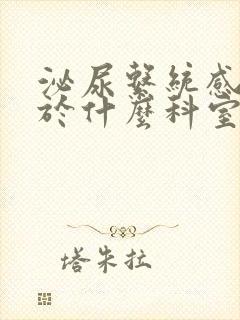 泌尿繫統感
於什麼科室
塔朱拉